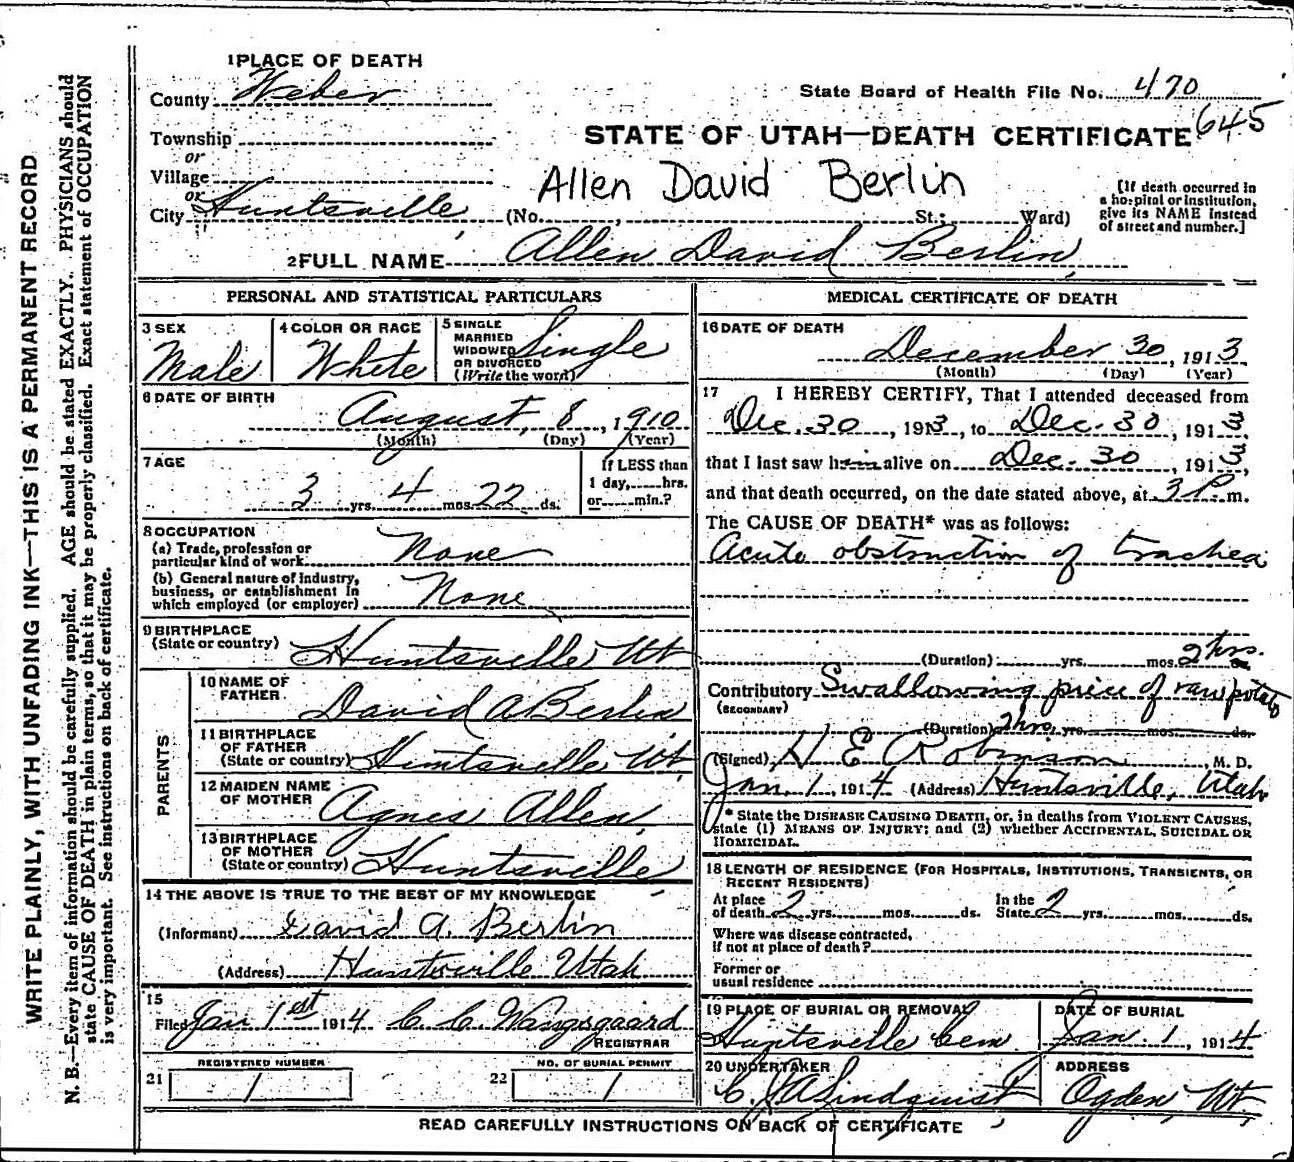 WRITE PLAINLY, WITH UNFADING INK—THIS IS A PERMANENT RECORD
N. B.—Every item of information should be carefully supplied. AGE should be stated EXACTLY. PHYSICIANS should
state CAUSE OF DEATH in plain terms, so that it may be properly classified. Exact statement of OCCUPATION
is very important. See instructions on back of certificate.
1 PLACE OF DEATH
County Weber
State Board of Health File No. 470
645
Township
or
STATE OF UTAH—DEATH CERTIFICATE
Village
or
Allen David Berlin
City Huntsville, (No. , St.; Ward)
[If death occurred in
a hospital or institution,
give its NAME instead
of street and number.]
2 FULL NAME Allen David Berlin,
PERSONAL AND STATISTICAL PARTICULARS
3 SEX
Male
4 COLOR OR RACE
White
5 SINGLE
MARRIED
WIDOWED
OR DIVORCED
(Write the word)
Single
6 DATE OF BIRTH
August, 8, 1910
(Month) (Day) (Year)
7 AGE
3 yrs. 4 mos. 22 ds.
If LESS than
1 day, hrs.
or min.?
8 OCCUPATION
(a) Trade, profession or
particular kind of work None
(b) General nature of industry,
business, or establishment in
which employed (or employer) None
9 BIRTHPLACE
(State or country) Huntsville Ut
PARENTS
10 NAME OF
FATHER David A Berlin
11 BIRTHPLACE
OF FATHER
(State or country) Huntsville Ut.
12 MAIDEN NAME
OF MOTHER Agnes Allen,
13 BIRTHPLACE
OF MOTHER
(State or country) Huntsville
14 THE ABOVE IS TRUE TO THE BEST OF MY KNOWLEDGE
(Informant) David A. Berlin
(Address) Huntsville Utah
15
Filed Jan 1st 1914 C. C. Wangsgaard
REGISTRAR
REGISTERED NUMBER
21 1
NO. OF BURIAL PERMIT
22 1
MEDICAL CERTIFICATE OF DEATH
16 DATE OF DEATH
December 30, 1913
(Month) (Day) (Year)
17 I HEREBY CERTIFY, That I attended deceased from
Dec. 30, 1913, to Dec. 30, 1913,
that I last saw him alive on Dec. 30, 1913,
and that death occurred, on the date stated above, at 3 P. m.
The CAUSE OF DEATH* was as follows:
Acute obstruction of trachea
(Duration) yrs. mos. 2 hrs.
Contributory Swallowing piece of raw potato
(SECONDARY)
(Duration) 2 hrs. yrs. mos. ds.
(Signed) H E Robinson, M. D.
Jan. 1, 1914 (Address) Huntsville, Utah
* State the DISEASE CAUSING DEATH, or, in deaths from VIOLENT CAUSES,
state (1) MEANS OF INJURY; and (2) whether ACCIDENTAL, SUICIDAL OR
HOMICIDAL.
18 LENGTH OF RESIDENCE (FOR HOSPITALS, INSTITUTIONS, TRANSIENTS, OR
RECENT RESIDENTS)
At place
of death 2 yrs. mos. ds.
In the
State 2 yrs. mos. ds.
Where was disease contracted,
if not at place of death?
Former or
usual residence
19 PLACE OF BURIAL OR REMOVAL
Huntsville Cem.
DATE OF BURIAL
Jan. 1, 1914
20 UNDERTAKER
C. J. A Lindquist
ADDRESS
Ogden, Ut,
READ CAREFULLY INSTRUCTIONS ON BACK OF CERTIFICATE